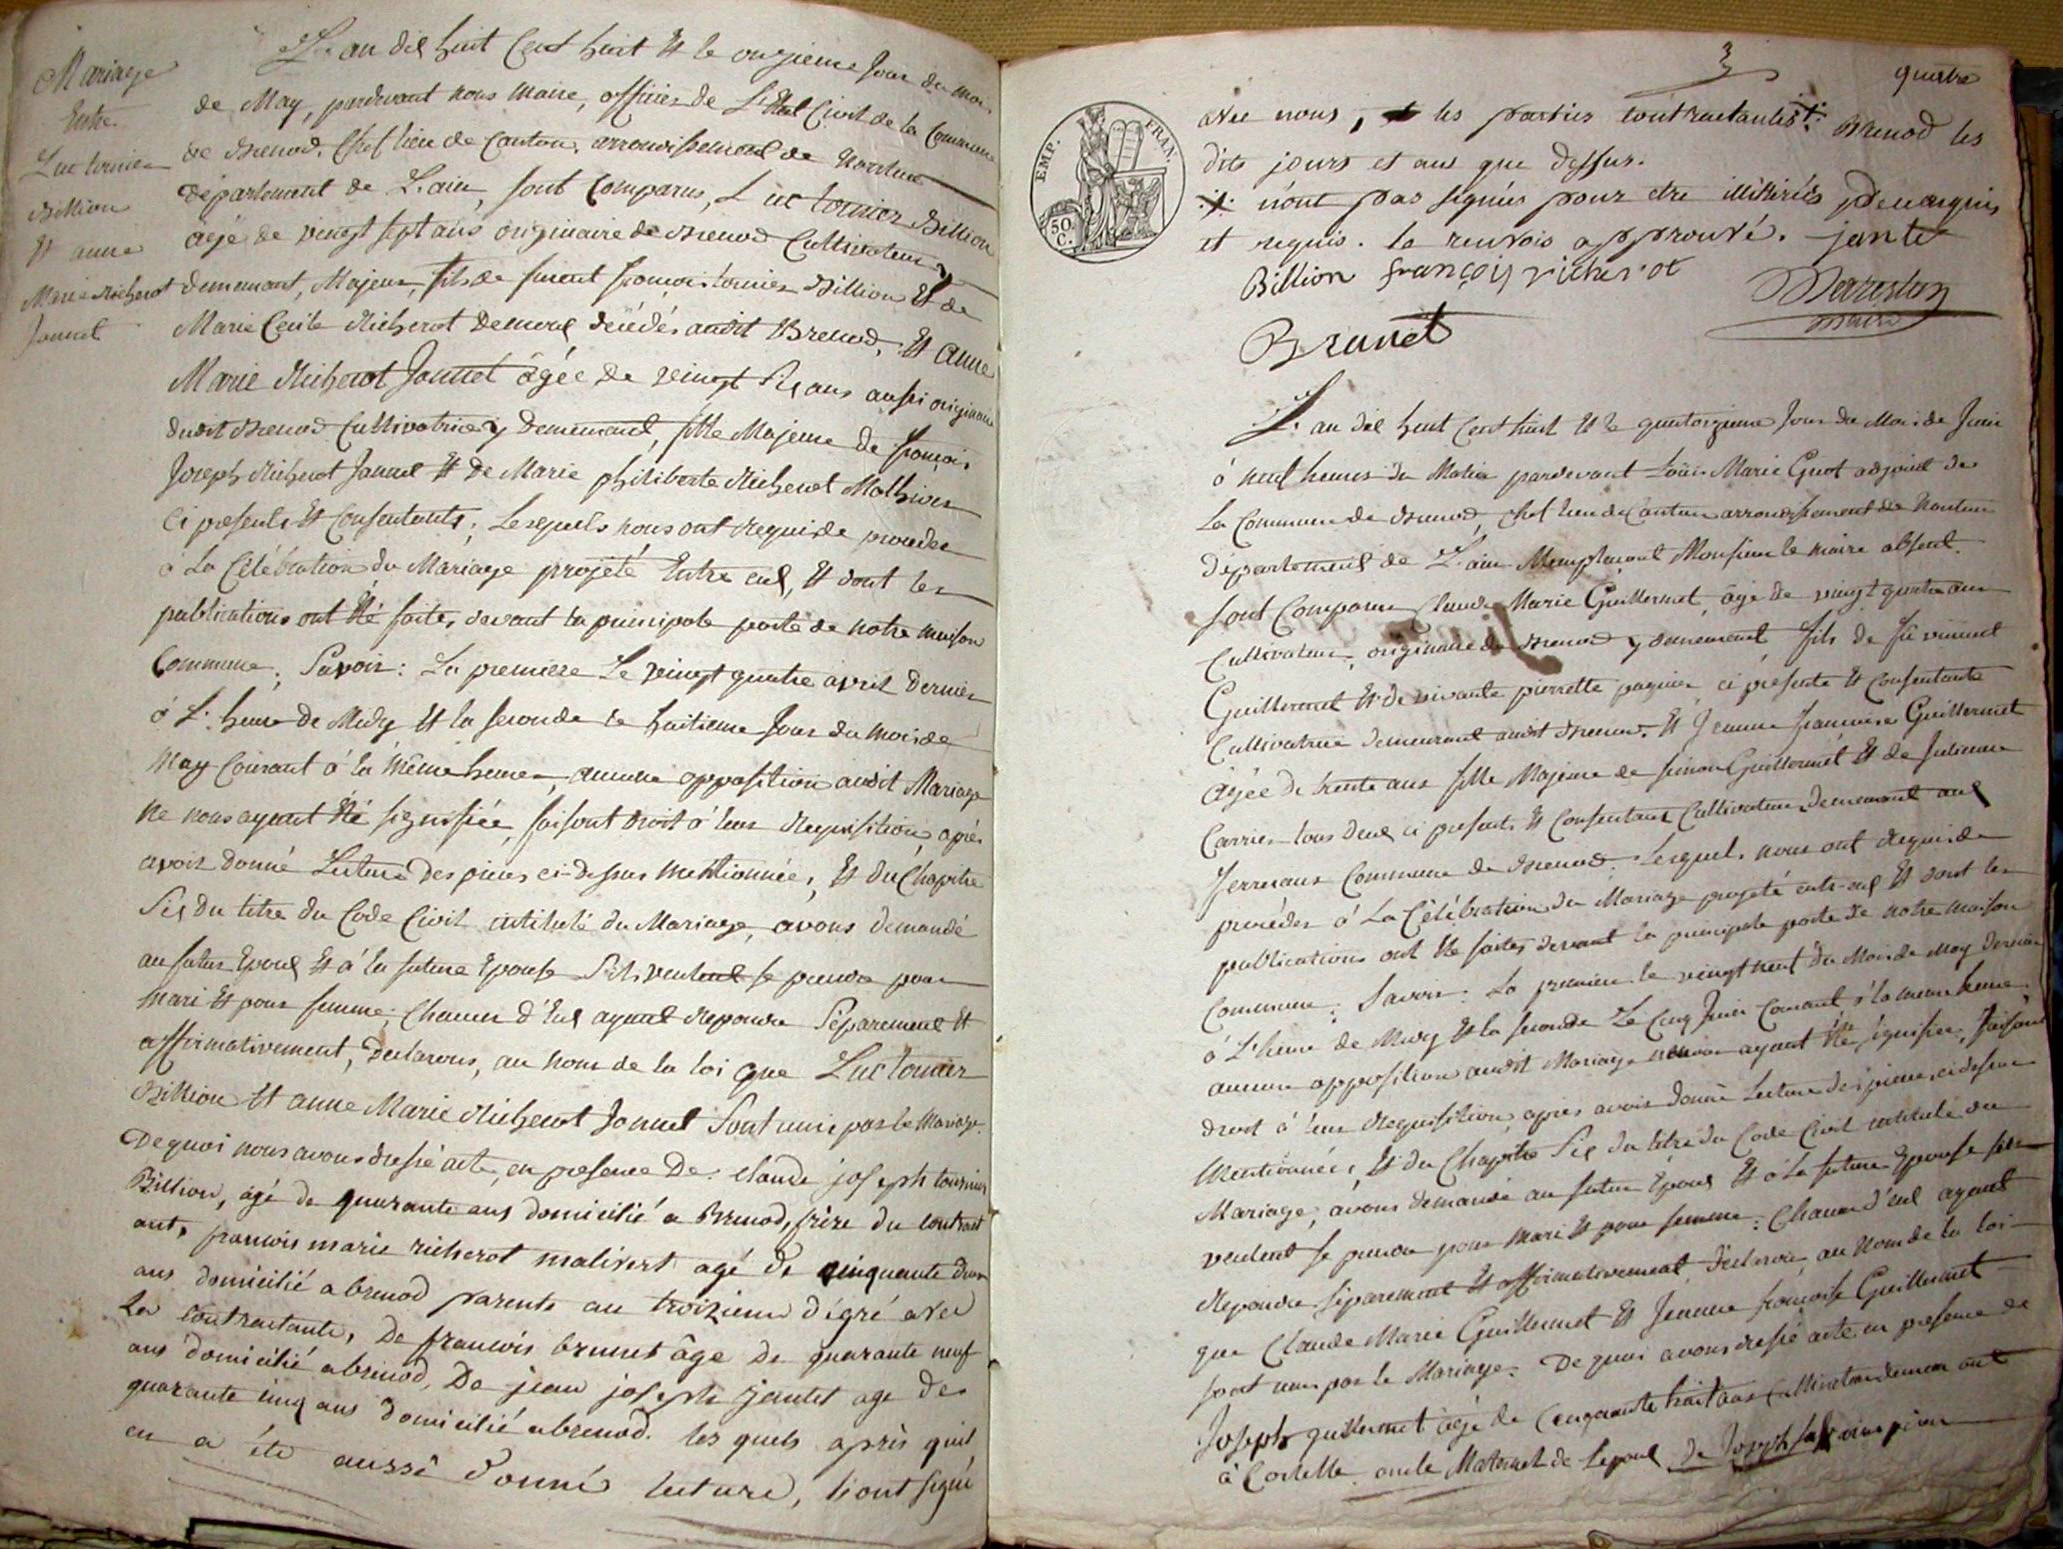 Mariage
Entre
Luc tornier
Billion
Et anne
Marie Richerot
Jannet
L'an dix huit Cent huit Et le onzieme Jour du mois
de May, pardevant nous Maire, officier de L'Etat Civil de la Commune
de Brenod, Chef lieu de Canton, arrondissement de Nantua
département de L'ain, sont Comparus, Luc tornier Billion
agé de veingt sept ans originaire de Brenod Cultivateur y
demeurant, Majeur, fils de furent françois tornier Billion Et de
Marie Cecile Richerot demeurant décédés audit Brenod, Et anne
Marie Richerot Jannet âgée de veingt Six ans aussi originaire
dudit Brenod Cultivatrice y demeurant, fille Majeure de françois
Joseph Richerot Jannet Et de Marie philiberte Richerot
Ci presents Et Consentants; Lesquels nous ont Requis de proceder
à La Célébration du Mariage projeté Entre eux, Et dont les
publications ont été faites, devant la principale porte de notre maison
Commune; Savoir: La premiere Le veingt quatre avril dernier
à L'heure de Midy Et la seconde le huitieme Jour du mois de
May Courant à la même heure, aucune opposition audit Mariage
Ne nous ayant été signifiée, faisant droit à leur Requisition, après
avoir donné Lecture des pieces ci-dessus Mentionnées, Et du Chapitre
Six du titre du Code Civil intitulé du Mariage, avons demandé
au futur Epoux Et à la future Epouse S'ils veulent se prendre pour
mari Et pour femme; Chacun d'Eux ayant Repondu Séparement Et
affirmativement, Declarons, au nom de la loi que Luc tornier
Billion Et anne Marie Richerot Jannet Sont unis par le Mariage.
De quoi nous avons dressé acte, en presence De claude joseph tournier
Billion, âgé de quarante ans domicilié a Brenod, frère du contract
ant, francois marie richerot malivert agé de cinquante deux
ans domicilié a brenod parents au troizieme dégré avec
La contractante, De francois brunet âge de quarante neuf
ans domicilié a brenod, De jean joseph jantet age de
quarante cinq ans domicilié a brenod. les quels après quil
en a été aussi donné lecture, l'ont signé
3
quatre
EMP. FRAN.
50 C.
avec nous, les parties contractantes Brenod les
dits jours et ans que dessus.
n'ont pas signés pour etre illitérés
et requis. le renvois approuvé. jantet
Billion françois richerot
maire
Brunet
L'an dix huit Cent huit Et le quatorzieme Jour du Mois de Juin
à neuf heures du Matin pardevant Louis Marie Guot adjoint de
La Commune de Brenod, chef lieu de Canton arrondissement de Nantua
département de L'ain Remplaçant Monsieur le maire absent.
sont Comparus Claude Marie Guillermet, âgé de veingt quatre ans
Cultivateur, originaire de Brenod y demeurant, fils de
Guillermet Et de vivante pierrette paquier ci présente Et Consentante
Cultivatrice demeurant audit Brenod. Et Jeanne francoise Guillermet
Agée de trente ans fille Majeure de simon Guillermet Et de Julienne
Carrier tous deux ci presents Et Consentans Cultivateurs demeurant aux
Commune de Brenod. Lesquels nous ont Requis de
proceder à La Célébration du Mariage projeté entr-eux Et dont les
publications ont été faites devant la principale porte de notre maison
Commune: Savoir: La premiere le veingt neuf du Mois de May dernier
à L'heure de Midy Et la seconde Le Cinq Juin Courant à la meme heure
aucune opposition audit Mariage ayant été signifiée, faisant
droit à leur Requisition, après avoir donné Lecture des pieces ci dessus
Mentionnées, Et du Chapitre Six du titre du Code Civil intitulé du
Mariage, avons demandé au futur Epoux Et à La future Epouse s'ils
veulent se prendre pour Mari Et pour femme: Chacun d'eux ayant
Repondu Séparement Et affirmativement, Declarons au Nom de la loi
que Claude Marie Guillermet Et Jeanne françoise Guillermet
sont unis par le Mariage. De quoi avons dressé acte en presence de
Joseph guillermet âgé de Cinquante huit ans Cultivateur demeurant
à Corcelle oncle Maternel de L'epoux de Joseph